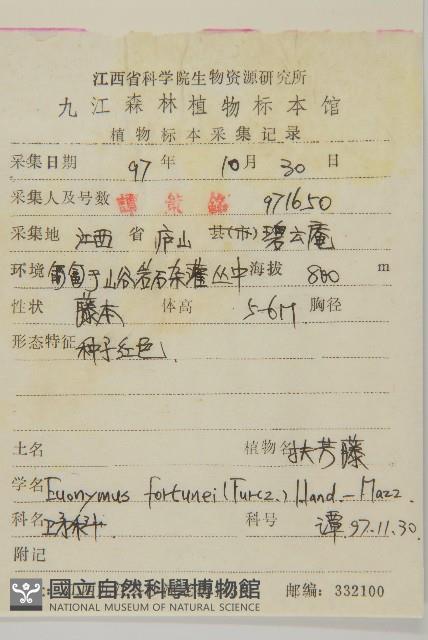 江西省科学院生物资源研究所
九江森林植物标本馆
植物标本采集记录
采集日期 97 年 10 月 30 日
采集人及号数 譚 銘 971650
采集地 江西 省 庐山 县(市) 碧云庵
环境 匍匐于山谷岩石杂灌丛中 海拔 800 m
性状 藤本 体高 5-6M 胸径
形态特征 种子红色.
土名 植物名 扶芳藤
学名 Euonymus fortunei (Turcz.) Hand-Mazz.
科名 科号 谭 97.11.30.
附记
邮编: 332100
國立自然科學博物館
NATIONAL MUSEUM OF NATURAL SCIENCE